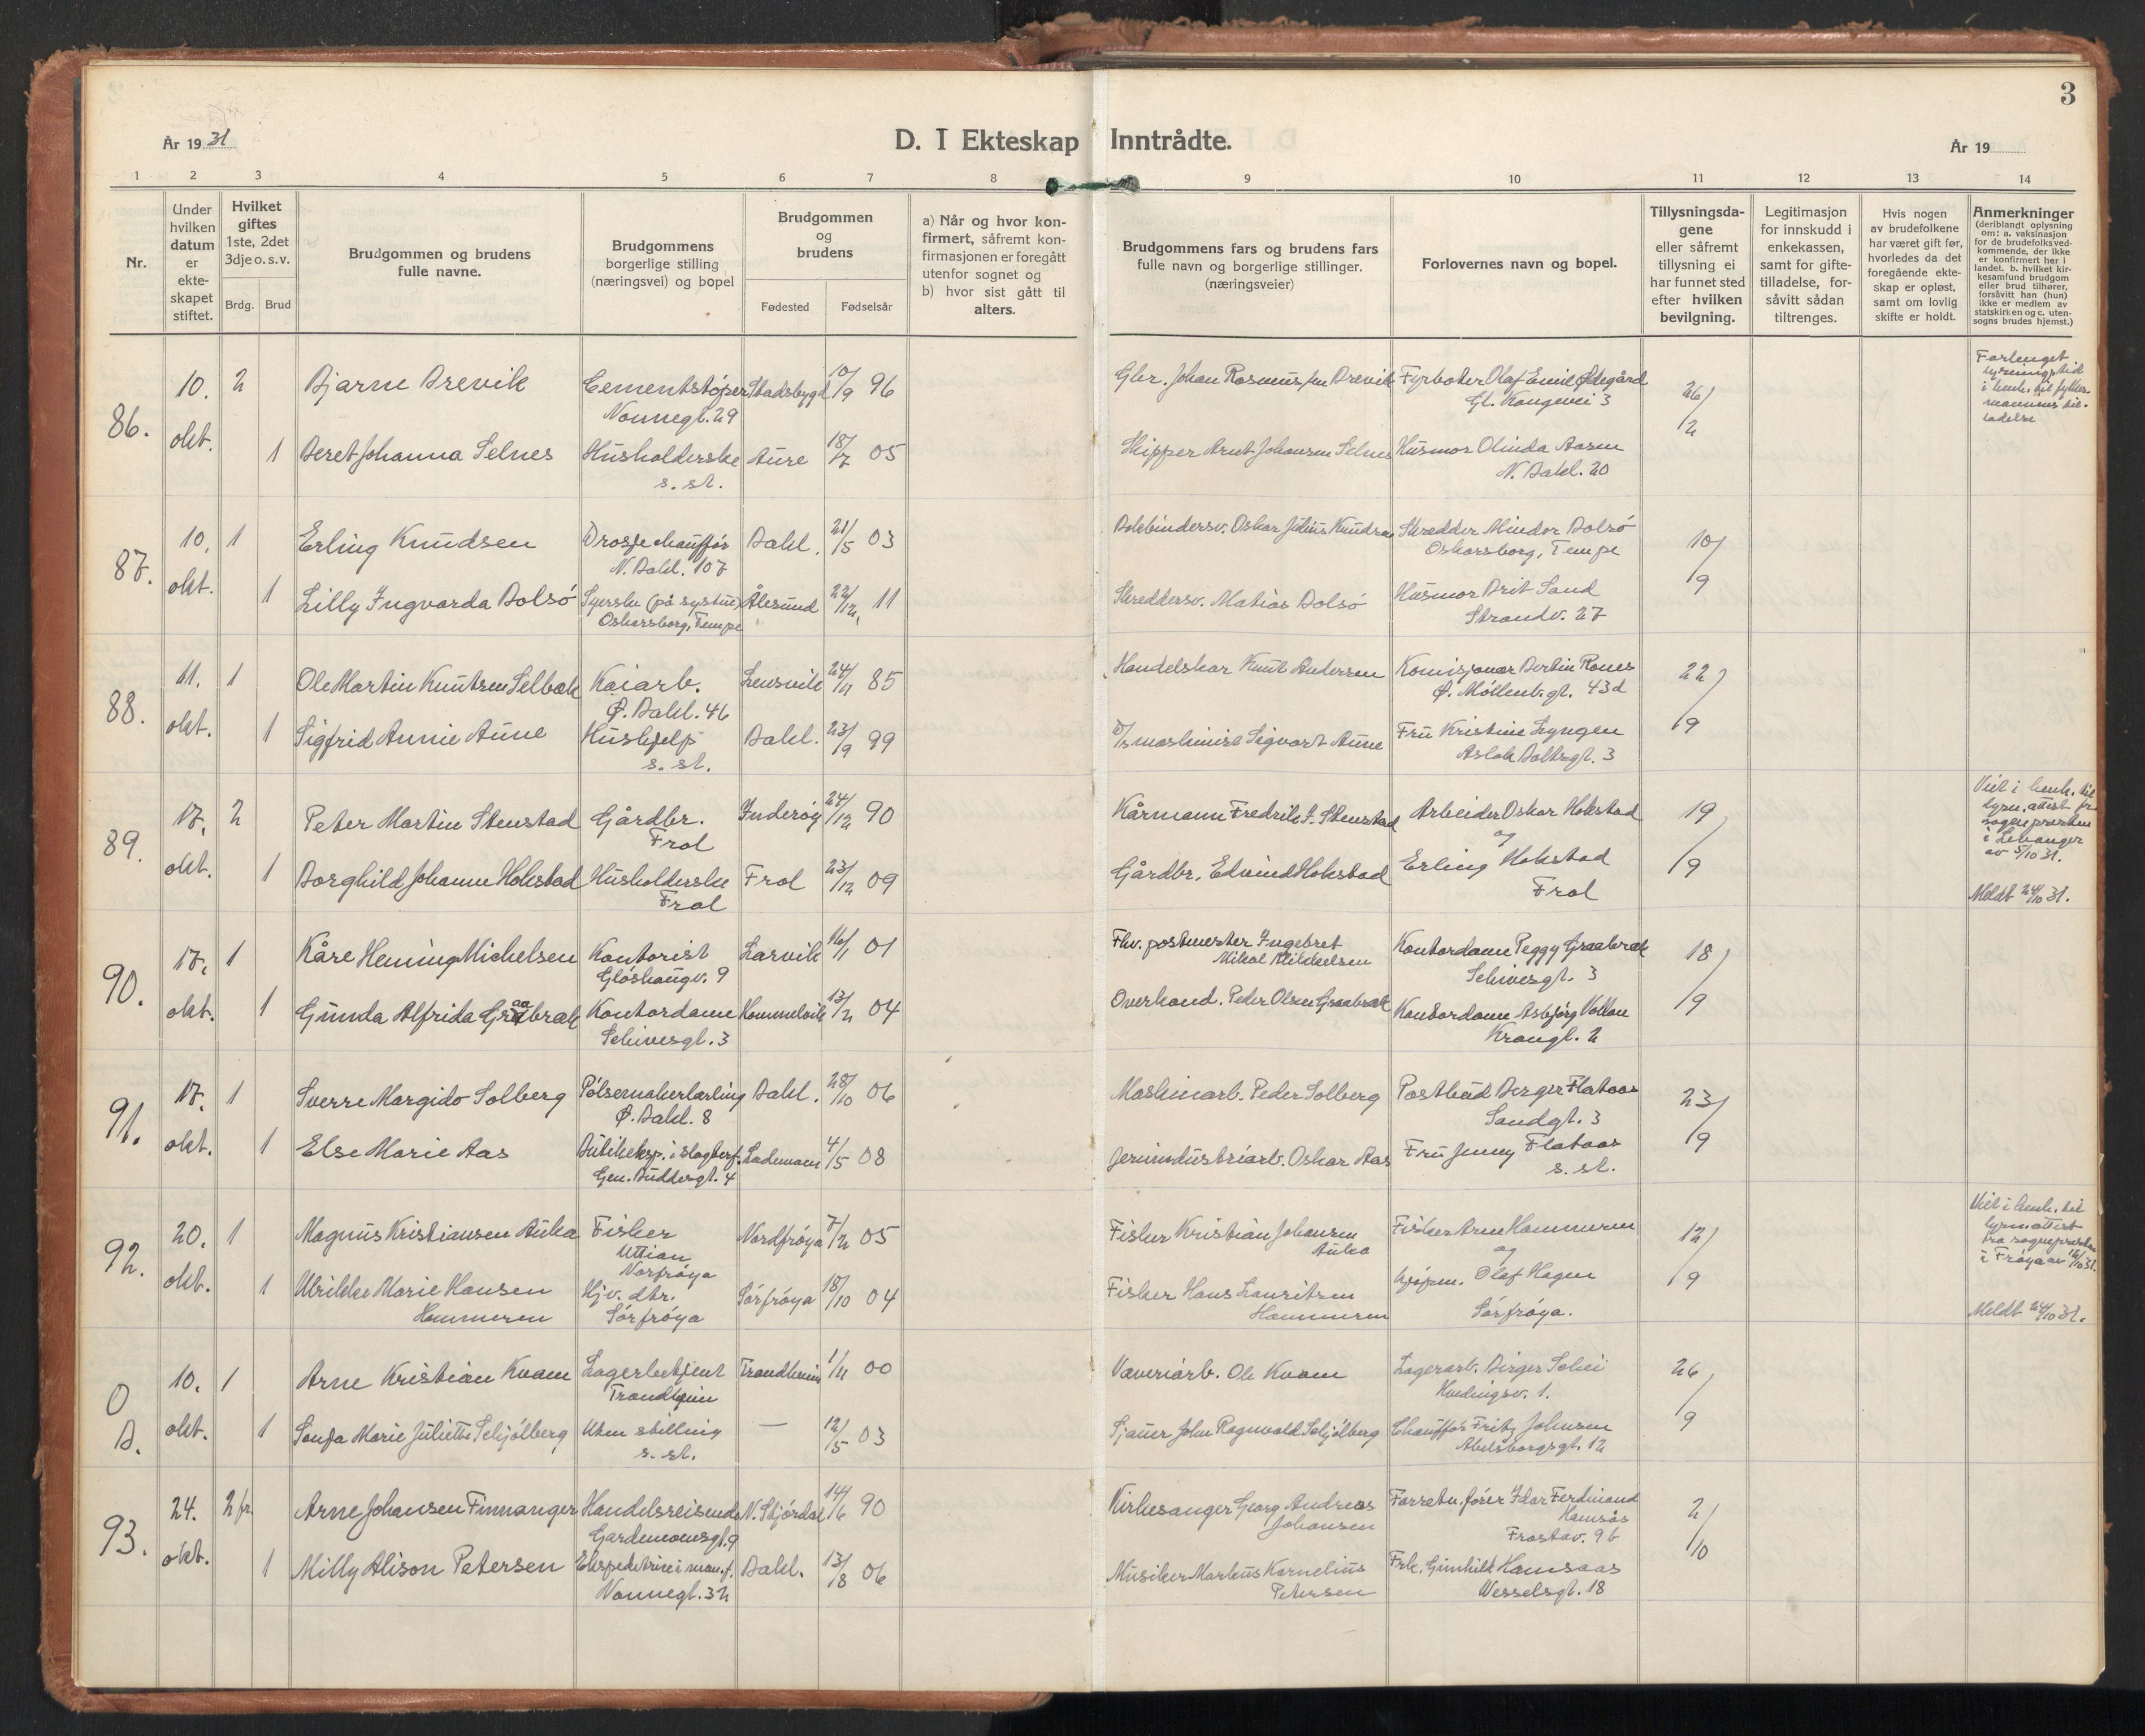 3
År 19 31
D. I Ekteskap Inntrådte.
År 19
1 2 3 4 5 6 7 8 9 10 11 12 13 14
Nr.
Under hvilken datum er ekteskapet stiftet.
Hvilket giftes 1ste, 2det 3dje o. s. v.
Brdg. Brud
Brudgommen og brudens fulle navne.
Brudgommens borgerlige stilling (næringsvei) og bopel
Brudgommen og brudens
Fødested Fødselsår
a) Når og hvor konfirmert, såfremt konfirmasjonen er foregått utenfor sognet og
b) hvor sist gått til alters.
Brudgommens fars og brudens fars fulle navn og borgerlige stillinger. (næringsveier)
Forlovernes navn og bopel.
Tillysningsdagene eller såfremt tillysning ei har funnet sted efter hvilken bevilgning.
Legitimasjon for innskudd i enkekassen, samt for giftetilladelse, forsåvitt sådan tiltrenges.
Hvis nogen av brudefolkene har været gift før, hvorledes da det foregående ekteskap er opløst, samt om lovlig skifte er holdt.
Anmerkninger (deriblandt oplysning om: a. vaksinasjon for de brudefolks vedkommende, der ikke er konfirmert her i landet. b. hvilket kirkesamfund brudgom eller brud tilhører, forsåvitt han (hun) ikke er medlem av statskirken og c. utensogns brudes hjemst.)
86. 10. okt. 2 Bjarne Brevik Cementstøper Stadsbygd 10/9 96 Gbr. Johan Rasmussen Brevik Fyrbøter Olaf Emil Ødegård 26/2 Forlenget
Nonnegt. 29 Gl. Kongevei 3 lysningstid
i henh. til fylkesmannens tilladelse
1 Beret Johanna Selnes Husholderske Aure 18/7 05 Skipper Arnt Johansen Selnes Husmor Olinda Aasen
s. st. N. Bakl. 20
87. 10. okt. 1 Erling Knudsen Drosjechauffør Bakl. 21/5 03 Bokbindersv. Oskar Julius Knudsen Skredder Mindor Bolsø 10/9
N. Bakl. 107 Oskarsborg, Tempe
1 Lilly Ingvarda Bolsø Syerske (på systue) Ålesund 22/12 11 Skreddersv. Matias Bolsø Husmor Brit Sand
Oskarsborg, Tempe Strandv. 27
88. 11. okt. 1 Ole Martin Knutsen Selbæk Kaiarb. Lensvik 24/11 85 Handelskar Knut Andersen Komisjonær Bertin Rones 22/9
Ø. Bakl. 46 Ø. Møllenb. gt. 43d
1 Sigfrid Annie Aune Hushjelp Bakl. 23/9 99 D/s maskinist Sigvart Aune Fru Kristine Lyngen
s. st. Aslak Boltsgt. 3
89. 17. okt. 2 Peter Martin Stenstad Gårdbr. Inderøy 24/12 90 Kårmann Fredrik J. Stenstad Arbeider Oskar Hokstad 19/9 Viet i henh. til
Frol og lysn. attest fra
sognepresten
i Levanger
av 5/10 31.
1 Borghild Johanne Hokstad Husholderske Frol 23/12 09 Gårdbr. Edvind Hokstad Erling Hokstad
Frol Frol Meldt 24/10 31.
90. 17. okt. 1 Kåre Hening Michelsen Kontorist Larvik 16/1 01 Fhv. postmester Ingebret Kontordame Peggy Graabræk 18/9
Gløshaugv. 9 Mikal Mikkelsen Schivesgt. 3
1 Gunda Alfrida Graabræk Kontordame Hommelvik 13/2 04 Overkond. Peder Olsen Graabræk Kontordame Asbjørg Vollan
Schivesgt. 3 Krongt. 2
91. 17. okt. 1 Sverre Margido Solberg Pølsemakerlærling Bakl. 28/10 06 Maskinarb. Peder Solberg Postbud Berger Flataas 23/9
Ø. Bakl. 8 Sandgt. 3
1 Else Marie Aas Butikeksp. i slagterf. Lademoen 4/5 08 Jernindustriarb. Oskar Aas Fru Jenny Flataas
Gen. Buddesgt. 4 s. st.
92. 20. okt. 1 Magnus Kristiansen Auka Fisker Nordfrøya 7/2 05 Fisker Kristian Johansen Fisker Arne Hammeren 12/9 Viet i henh. til
Uttian Auka og lysn. attest
Norfrøya fra sognepresten
i Frøya av 16/10 31.
1 Ulrikke Marie Hansen Hjv. dtr. Sørfrøya 18/10 04 Fisker Hans Lauritsen Olaf Hagen
Hammeren Sørfrøya Hammeren Sørfrøya. Meldt 24/10 31.
O B. 10. okt. 1 Arne Kristian Kvam Lagerbetjent Trondheim 1/11 00 Væveriarb. Ole Kvam Lagerarb. Birger Schei 26/9
Trondheim Hvedingsv. 1.
1 Sonja Marie Juliette Schjølberg Uten stilling — 12/5 03 Sjauer John Ragnvald Schjølberg Chauffør Fritz Johnsen
s. st. Abelsborgsgt. 12
93. 24. okt. 2 fr. Arne Johansen Finnanger Handelsreisende N. Stjørdal 14/6 90 Kirkesanger Georg Andreas Forretn. fører Idar Ferdinand 2/10
Gardemoensgt. 9 Johansen Hamsås
Frostav. 9b
1 Milly Alison Petersen Ekspeditrise i man.f. Bakl. 13/8 06 Musiker Markus Kornelius Frk. Gunhild Hamsaas
Nonnegt. 32 Petersen Wesselsgt. 18